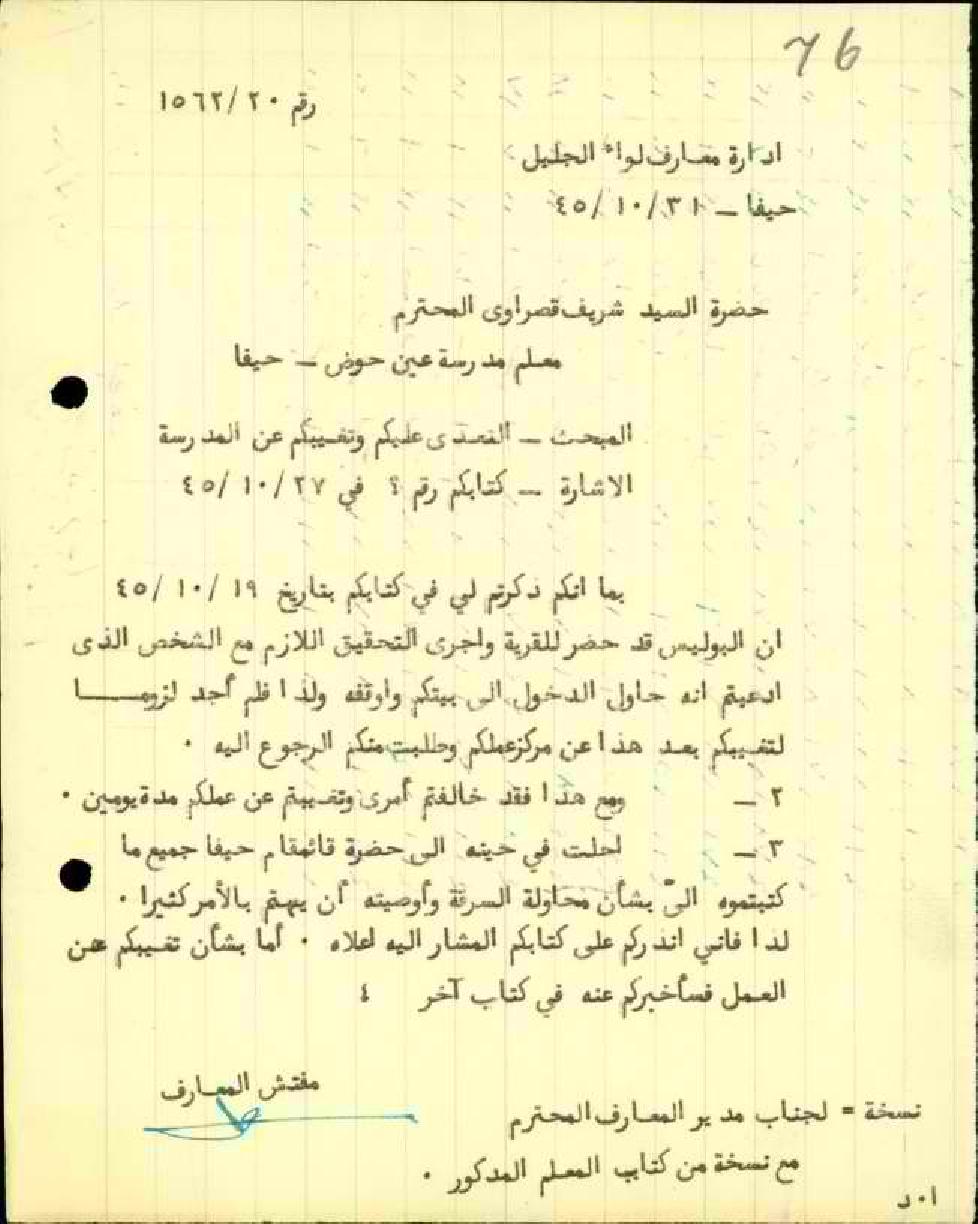 76
رقم ١٥٦٢/٢٠
ادارة معارف لواء الجليل
حيفا – ٤٥/١٠/٣١
حضرة السيد شريف قصراوى المحترم
معلم مدرسة عين حوض – حيفا
المبحث – التعدى عليكم وتغيبكم عن المدرسة
الاشارة – كتابكم رقم ؟ في ٤٥/١٠/٢٧
بما انكم ذكرتم لي في كتابكم بتاريخ ٤٥/١٠/١٩
ان البوليس قد حضر للقرية واجرى التحقيق اللازم مع الشخص الذى
ادعيتم انه حاول الدخول الى بيتكم واوقفه ولذا فلم أجد لزومـــــا
لتغيبكم بعد هذا عن مركز عملكم وطلبت منكم الرجوع اليه ٠
٢ – ومع هذا فقد خالفتم أمرى وتغيبتم عن عملكم مدة يومين ٠
٣ – احلت في حينه الى حضرة قائمقام حيفا جميع ما
كتبتموه اليّ بشأن محاولة السرقة وأوصيته أن يهتم بالأمر كثيرا ٠
لذا فاني انذركم على كتابكم المشار اليه اعلاه ٠ أما بشأن تغيبكم عن
العمل فسأخبركم عنه في كتاب آخر ٤
مفتش المعارف
نسخة = لجناب مدير المعارف المحترم
مع نسخة من كتاب المعلم المذكور ٠
ا٠د